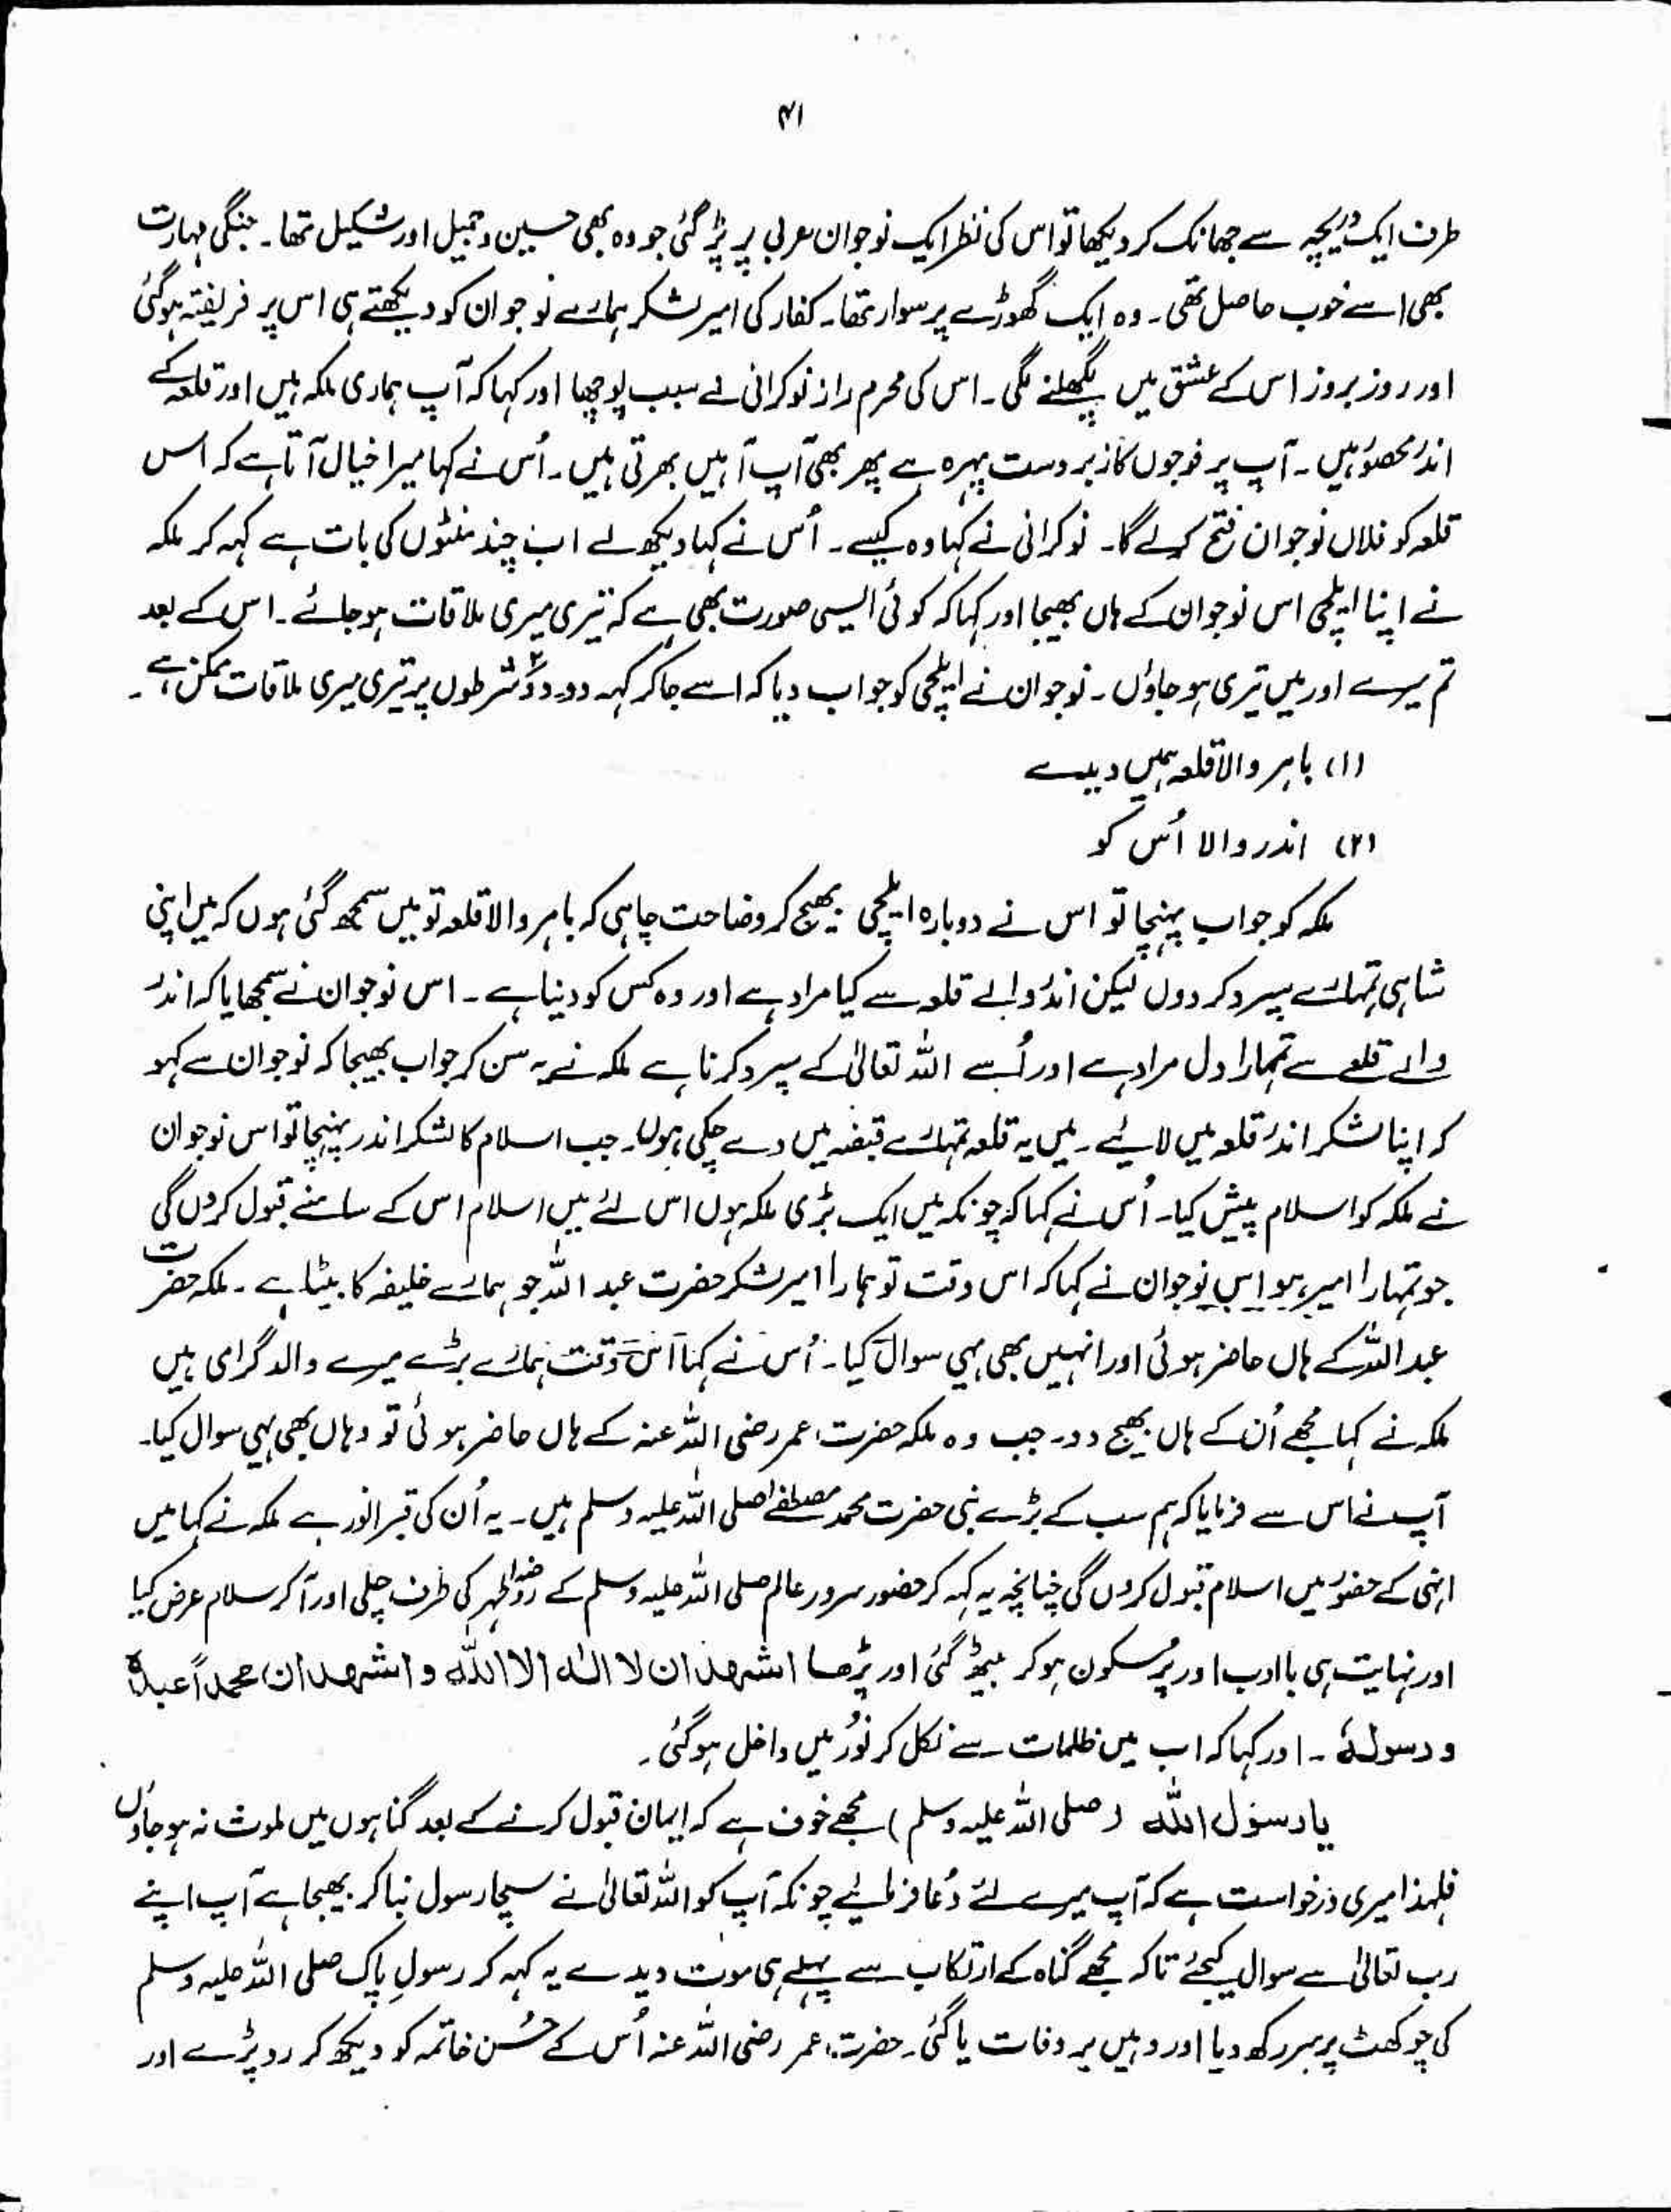 ۴۱
طرف ایک دریچہ سے جھانک کر دیکھا تو اس کی نظر ایک نوجوان عربی پر پڑ گئی جو وہ بھی حسین و جمیل اور شکیل تھا۔ جنگی مہارت
بھی اسے خوب حاصل تھی۔ وہ ایک گھوڑے پر سوار تھا۔ کفار کی امیر لشکر ہمارے نوجوان کو دیکھتے ہی اس پر فریفتہ ہوگئی
اور روز بروز اس کے عشق میں پگھلنے لگی۔ اس کی محرم راز نوکرانی نے سبب پوچھا اور کہا کہ آپ ہماری ملکہ ہیں اور قلعہ کے
اندر محصور ہیں۔ آپ پر فوجوں کا زبردست پہرہ ہے پھر بھی آپ آہیں بھرتی ہیں۔ اُس نے کہا میرا خیال آتا ہے کہ اس
قلعہ کو فلاں نوجوان فتح کرلے گا۔ نوکرانی نے کہا وہ کیسے۔ اُس نے کہا دیکھ لے اب چند منٹوں کی بات ہے کہہ کر ملکہ
نے اپنا ایلچی اس نوجوان کے ہاں بھیجا اور کہا کہ کوئی ایسی صورت بھی ہے کہ تیری میری ملاقات ہوجائے۔ اس کے بعد
تم میرے اور میں تیری ہو جاؤں۔ نوجوان نے ایلچی کو جواب دیا کہ اسے جاکر کہہ دو دو۲ شرطوں پر تیری میری ملاقات ممکن ہے۔
(۱) باہر والا قلعہ ہمیں دیدے
(۲) اندر والا اُس کو
ملکہ کو جواب پہنچا تو اس نے دوبارہ ایلچی بھیج کر وضاحت چاہی کہ باہر والا قلعہ تو میں سمجھ گئی ہوں کہ میں اپنی
شاہی تمہارے سپرد کر دوں لیکن اندر والے قلعہ سے کیا مراد ہے اور وہ کس کو دینا ہے۔ اس نوجوان نے سمجھایا کہ اندر
والے قلعے سے تمہارا دل مراد ہے اور اُسے اللہ تعالیٰ کے سپرد کرنا ہے ملکہ نے یہ سن کر جواب بھیجا کہ نوجوان سے کہو
کہ اپنا لشکر اندر قلعہ میں لائیے۔ میں یہ قلعہ تمہارے قبضہ میں دے چکی ہوں۔ جب اسلام کا لشکر اندر پہنچا تو اس نوجوان
نے ملکہ کو اسلام پیش کیا۔ اُس نے کہا کہ چونکہ میں ایک بڑی ملکہ ہوں اس لئے میں اسلام اس کے سامنے قبول کروں گی
جو تمہارا امیر ہو اس نوجوان نے کہا کہ اس وقت تو ہمارا امیر لشکر حضرت عبد اللہ جو ہمارے خلیفہ کا بیٹا ہے۔ ملکہ حضرت
عبد اللہ کے ہاں حاضر ہوئی اور انہیں بھی یہی سوال کیا۔ اُس نے کہا اس وقت ہمارے بڑے میرے والد گرامی ہیں
ملکہ نے کہا مجھے اُن کے ہاں بھیج دو۔ جب وہ ملکہ حضرت عمر رضی اللہ عنہ کے ہاں حاضر ہوئی تو وہاں بھی یہی سوال کیا۔
آپ نے اس سے فرمایا کہ ہم سب کے بڑے نبی حضرت محمد مصطفےٰ صلی اللہ علیہ وسلم ہیں۔ یہ اُن کی قبر انور ہے ملکہ نے کہا میں
انہی کے حضور میں اسلام قبول کروں گی چنانچہ یہ کہہ کر حضور سرور عالم صلی اللہ علیہ وسلم کے روضہ اطہر کی طرف چلی اور آکر سلام عرض کیا
اور نہایت ہی با ادب اور پُرسکون ہوکر بیٹھ گئی اور پڑھا اشھدان لا الٰہ الا اللہ و اشھدان محمداً عبدہ
و رسولہٗ۔ اور کہا کہ اب میں ظلمات سے نکل کر نُور میں داخل ہوگئی۔
یا رسول اللہ (صلی اللہ علیہ وسلم) مجھے خوف ہے کہ ایمان قبول کرنے کے بعد گناہوں میں ملوث نہ ہو جاؤں
فلہذا میری درخواست ہے کہ آپ میرے لئے دُعا فرمائیے چونکہ آپ کو اللہ تعالیٰ نے سچا رسول بنا کر بھیجا ہے آپ اپنے
رب تعالیٰ سے سوال کیجئے تاکہ مجھے گناہ کے ارتکاب سے پہلے ہی موت دیدے یہ کہہ کر رسولِ پاک صلی اللہ علیہ وسلم
کی چوکھٹ پر سر رکھ دیا اور وہیں پر وفات پا گئی۔ حضرت عمر رضی اللہ عنہ اُس کے حُسن خاتمہ کو دیکھ کر رو پڑے اور